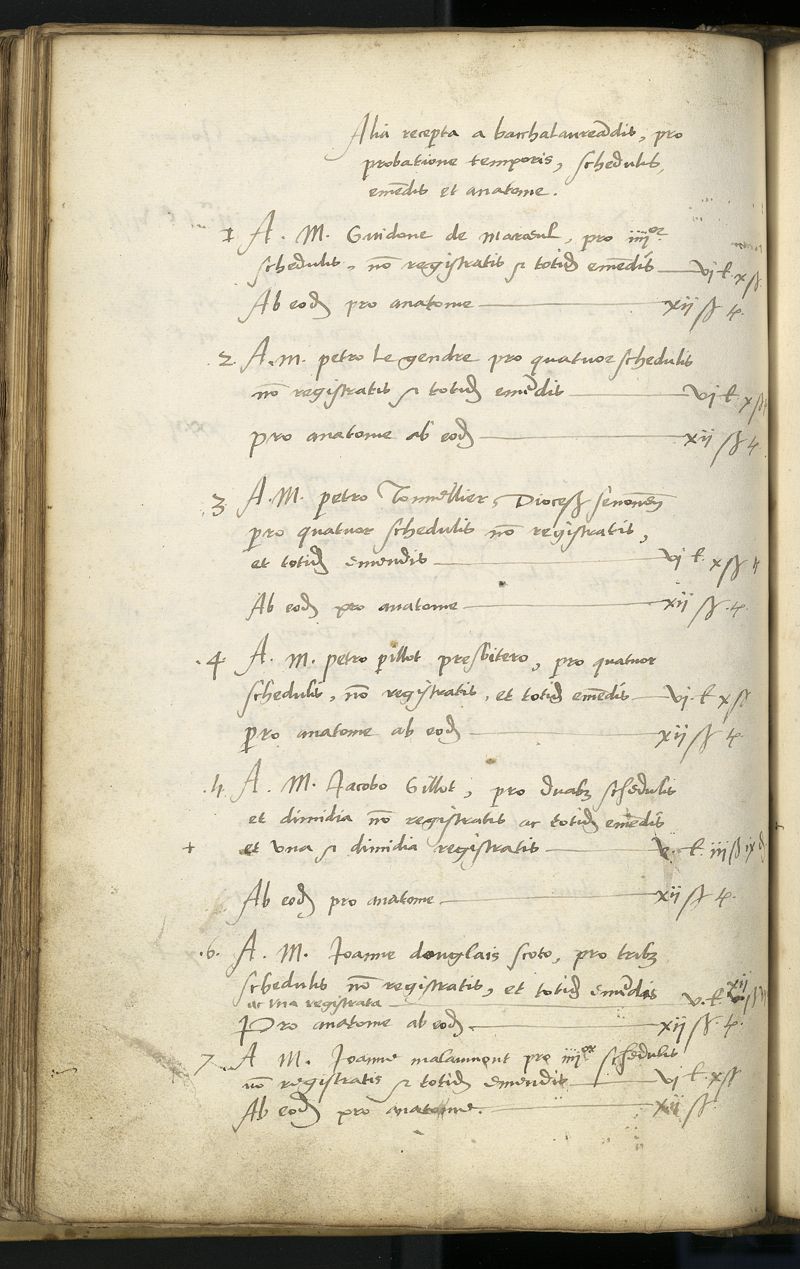 Alia recepta a bacchalaureādis, pro
probatione temporis, schedulis,
emēdis et anatome.
1 A. M. Guidone de maroeul, pro iiijor
schedulis, nō registratis et totidē emēdis vj ł. x ß
Ab eodē pro anatome xij ß t.
2. A. m. petro le gendre pro quatuor schedulis
nō registratis et totidē emēdis vj ł. x ß
pro anatome ab eodē xij ß t.
3 A. M. petro Tonnellier, Dioces. senonēn
pro quatuor schedulis nō registratis,
et totidē emendis vj ł. x ß t
Ab eodē pro anatome xij ß. t.
.4 A. M. petro pillot presbitero, pro quatuor
schedulis, nō registratis, et totidē emēdis vj. ł. x ß
pro anatome ab eodē xij ß t.
.5 A. M. Iacobo Gillot, pro duabz schedulis
et dimidia nō registratis ac totidē emēdis
+ et una et dimidia registratis v. ł. iij ß ix d
Ab eodē pro anatome xij ß t.
.6. A. M. Joanne douglais scoto, pro tribz
schedulis nō registratis, et totidē emēdis
ac una registrata v. ł. xij ß
Pro anatome ab eodē xij ß. t.
7 A M. Joanne malaumont pro iiijor schedulis
nō registratis et totidē emendis vj ł. x ß
Ab eodē pro anatome. xij ß.